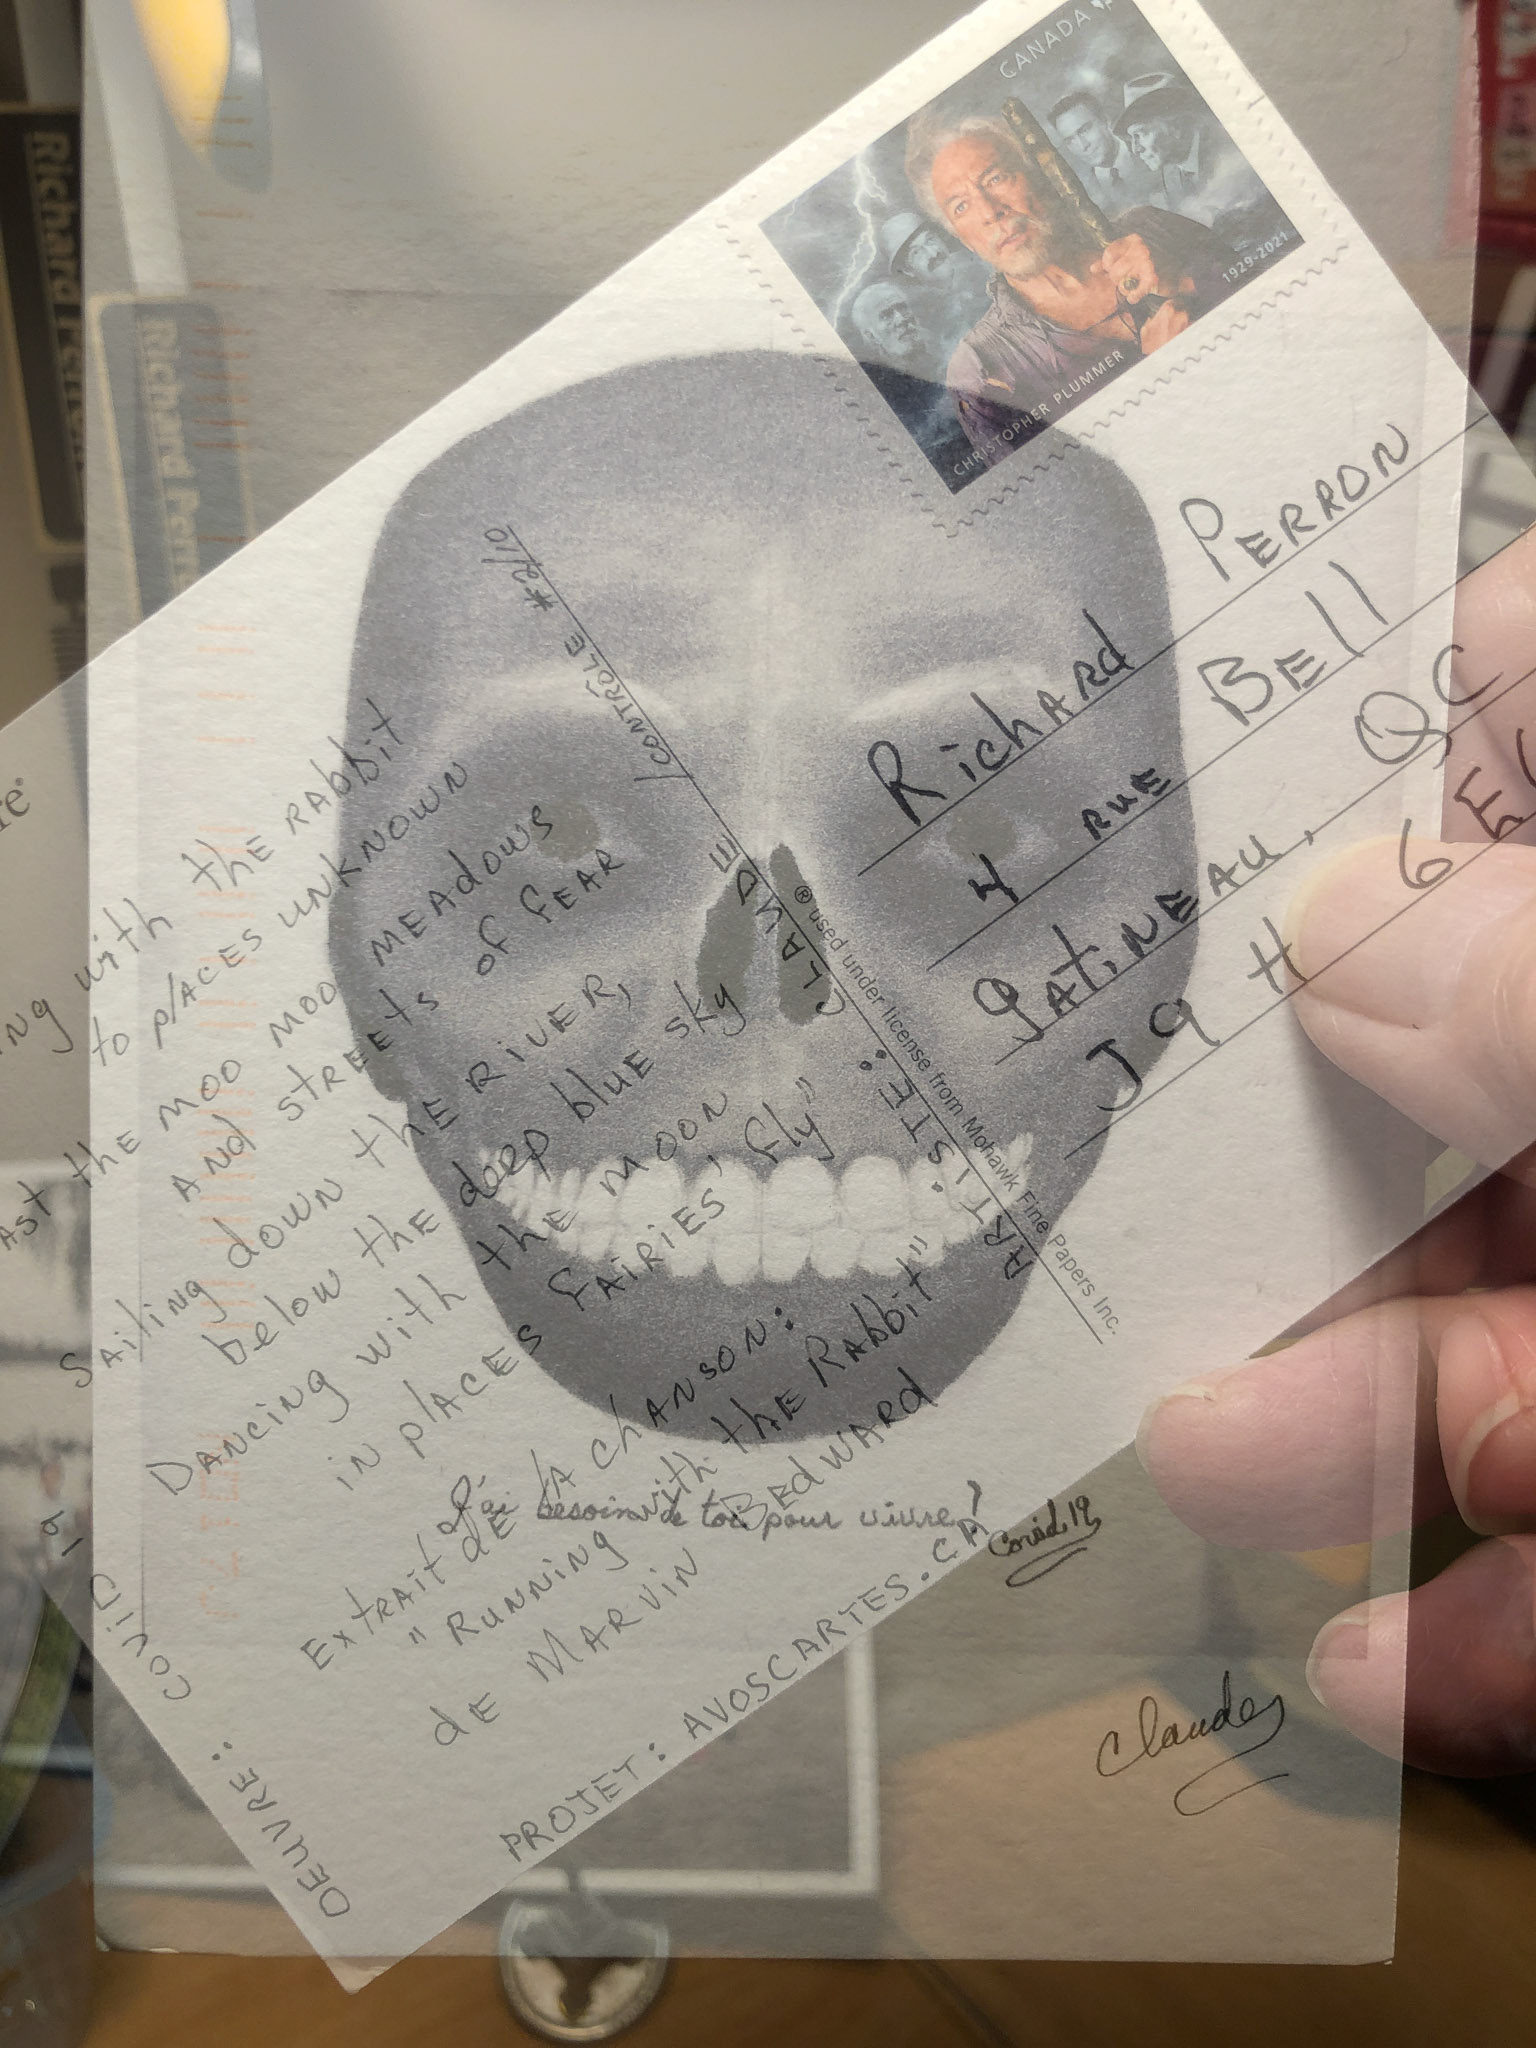 CANADA
1929-2021
CHRISTOPHER PLUMMER
Richard PERRON
4 RUE BEll
gAtiNEAU, QC
J9H 6E
CONTRÔLE #2/10
ARTISTE: CLAUDE
® used under license from Mohawk Fine Papers Inc.
with the RAbbit
to plACES UNKNOWN
the MOO MOO MEAdOWS
ANd STREETS of fEAR
SAiliNg dOWN thE RIVER,
bElOW thE dEEp bluE sky
DANCiNg with thE MOON
iN plACES fAiRiES, fly"
ExtRAit dE lA chANSON:
"RUNNiNg with thE RAbbit"
dE MARViN BEdWARd
PROJET: AVOSCARTES.CA
OEUVRE: COViD 19
J'ai besoin de toi pour vivre!
Covid 19
Claude
Richard
Richard